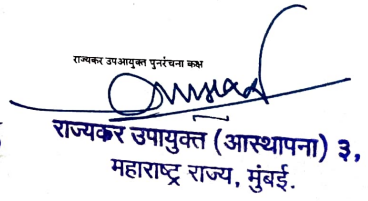 राज्यकर उपआयुक्त पुनरंचना कक्ष
राज्यकर उपायुक्त (आस्थापना) ३,
महाराष्ट्र राज्य, मुंबई.